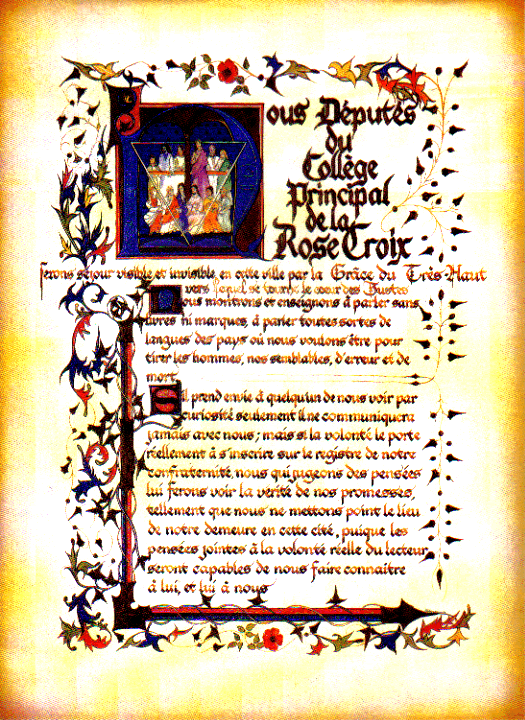 Nous Députés
du
Collège
Principal
de la
Rose Croix
ferons séjour visible et invisible, en cette ville par la Grâce du Très-Haut
vers lequel se tourne le coeur des Justes
Nous montrons et enseignons à parler sans
livres ni marques, à parler toutes sortes de
langues des pays où nous voulons être pour
tirer les hommes, nos semblables, d'erreur et de
mort.
S'il prend envie à quelqu'un de nous voir par
curiosité seulement il ne communiquera
jamais avec nous; mais si la volonté le porte
réellement à s'inscrire sur le registre de notre
confraternité, nous qui jugeons des pensées
lui ferons voir la vérité de nos promesses,
tellement que nous ne mettons point le lieu
de notre demeure en cette cité, puique les
pensées jointes à la volonté réelle du lecteur,
seront capables de nous faire connaître
à lui, et lui à nous